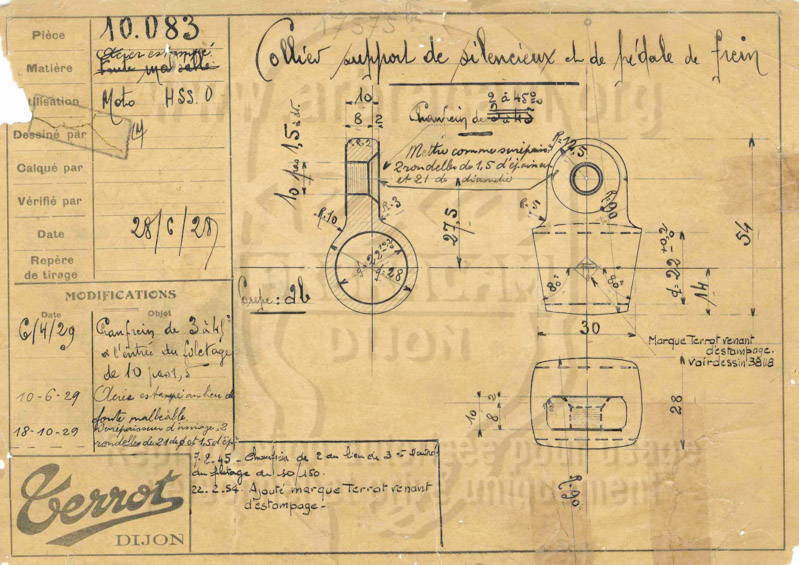 Pièce
10.083
Matière
Acier estampé
Fonte malléable
Utilisation
Moto HSS.O
Dessiné par
Calqué par
Vérifié par
Date
28/6/28
Repère
de tirage
MODIFICATIONS
Date
Objet
6/4/29
Chanfrein de 3 à 45°
à l'entrée du filetage
de 10 pas 1,5
10-6-29
Acier estampé au lieu de
fonte malléable
18-10-29
Surépaisseur d'usinage: 2
rondelles de 21 de ø et 1,5 d'ép.
Terrot
DIJON
7.2.45 - Chanfrein de 2 au lieu de 3
au filetage de 10/150.
22.2.54. Ajouté marque Terrot venant
d'estampage -
Collier support de silencieux et de pédale de frein
2 à 45°
Chanfrein de 3 à 45
10
8
2
10 pas 1,5
Mettre comme surépais.
2 rondelles de 1,5 d'épaisseur
et 21 de diamètre
R.10
R.3
27,5
ø 28
Coupe: ab
R.12,5
R.5
R.90
54
d=22 +0,2
14
80°
80°
30
Marque Terrot venant
d'estampage.
Voir dessin 38118
10
8
2
28
R.90
DIJON